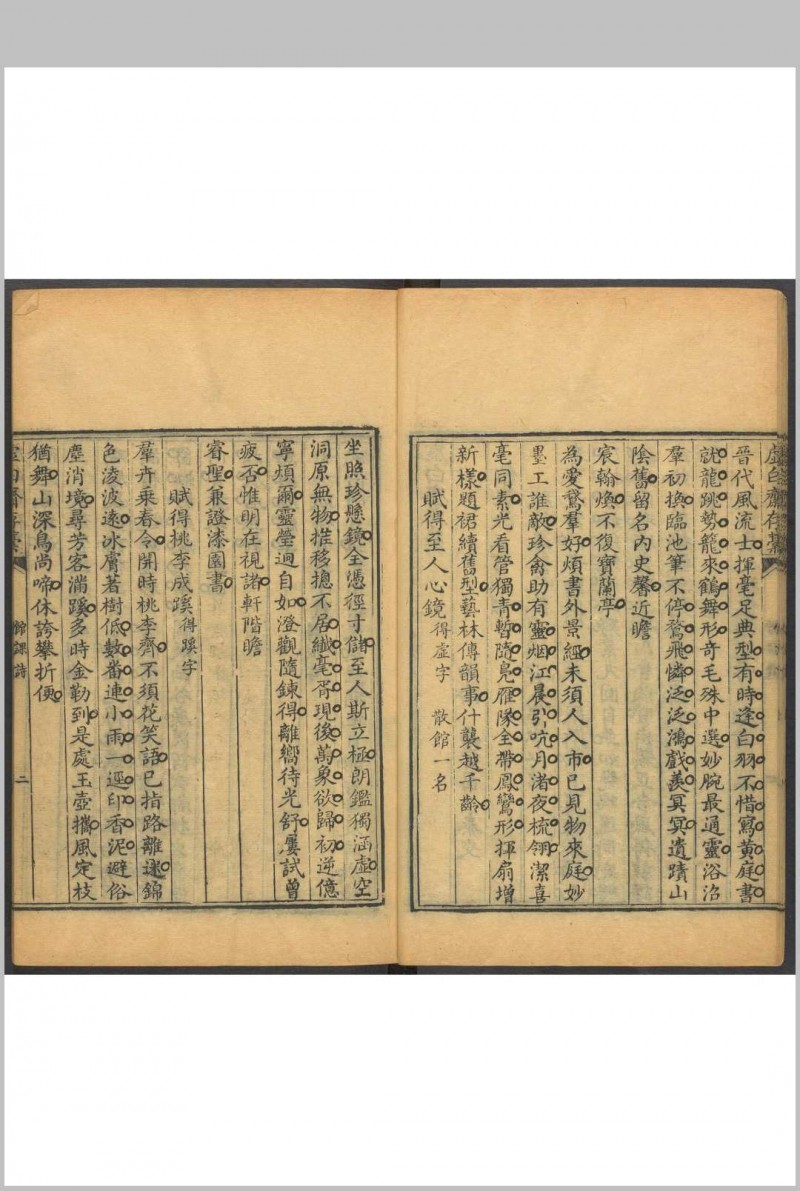 虛白齋存藁
晉代風流士揮毫足典型有時逢白羽不惜寫黃庭書
就龍跳勢籠來鶴舞形奇毛殊中選妙腕最通靈浴沿
羣初換臨池筆不停鶩飛憐泛泛鴻戲羨冥冥遺蹟山
陰舊留名內史馨近瞻
宸翰煥不復寶蘭亭
為愛鵞羣好煩書外景經未須人入市已見物來庭妙
墨工誰敵珍禽助有靈烟江晨引吭月渚夜梳翎潔喜
毫同素光看管獨青暫隨鳧雁隊全帶鳳鸞形揮扇增
新樣題裙續舊型藝林傳韻事什襲越千齡
賦得至人心鏡得虛字 散館一名
坐照珍懸鏡全憑徑寸儲至人斯立極朗鑑獨涵虛空
洞原無物推移摠不居纖毫胥現後萬象欲歸初逆億
寧煩爾靈瑩迥自如澄觀隨鍊得離嚮待光舒屢試曾
疲否惟明在視諸軒階瞻
睿聖兼證漆園書
賦得桃李成蹊得蹊字
羣卉乘春令開時桃李齊不須花笑語已指路離迷錦
色淩波遠冰膚著樹低數畨連小雨一逕印香泥避俗
塵消境尋芳客滿蹊多時金勒到是處玉壺攜風定枝
猶舞山深鳥尚啼休誇攀折便
虛白齋存藁
館課詩
二